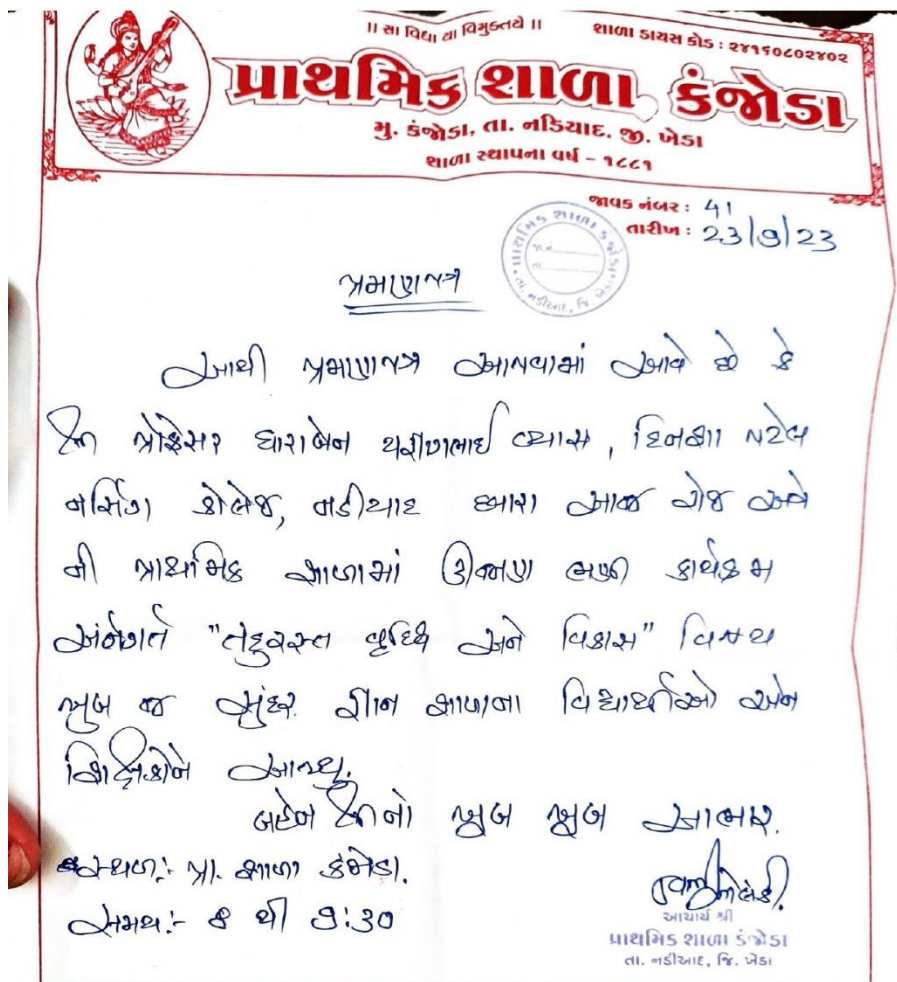 ॥ સા વિદ્યા યા વિમુક્તયે ॥
શાળા ડાયસ કોડ : ૨૪૧૬૦૮૦૨૪૦૨
પ્રાથમિક શાળા, કંજોડા
મુ. કંજોડા, તા. નડિયાદ, જી. ખેડા
શાળા સ્થાપના વર્ષ - ૧૮૮૧
જાવક નંબર : 41
તારીખ : 23/9/23
પ્રાથમિક શાળા કંજોડા
તા. નડીઆદ, જિ. ખેડા
પ્રમાણપત્ર
આથી પ્રમાણપત્ર આપવામાં આવે છે કે
પ્રોફેસર ધારાબેન વ્યાસ, દિનશા પટેલ
નર્સિંગ કોલેજ, નડીયાદ ધ્વારા આજ રોજ અત્રે
ની પ્રાથમિક શાળામાં કાર્યક્રમ
અંતર્ગત "તંદુરસ્ત વૃધ્ધિ અને વિકાસ" વિષય
ખુબ જ સુંદર જ્ઞાન શાળાના વિદ્યાર્થીઓ અને
શિક્ષકોને આપ્યુ.
બહેન નો ખુબ ખુબ આભાર.
સ્થળ:- પ્રા. શાળા કંજોડા.
સમય:- 8 થી 9:30
આચાર્ય શ્રી
પ્રાથમિક શાળા કંજોડા
તા. નડીઆદ, જિ. ખેડા